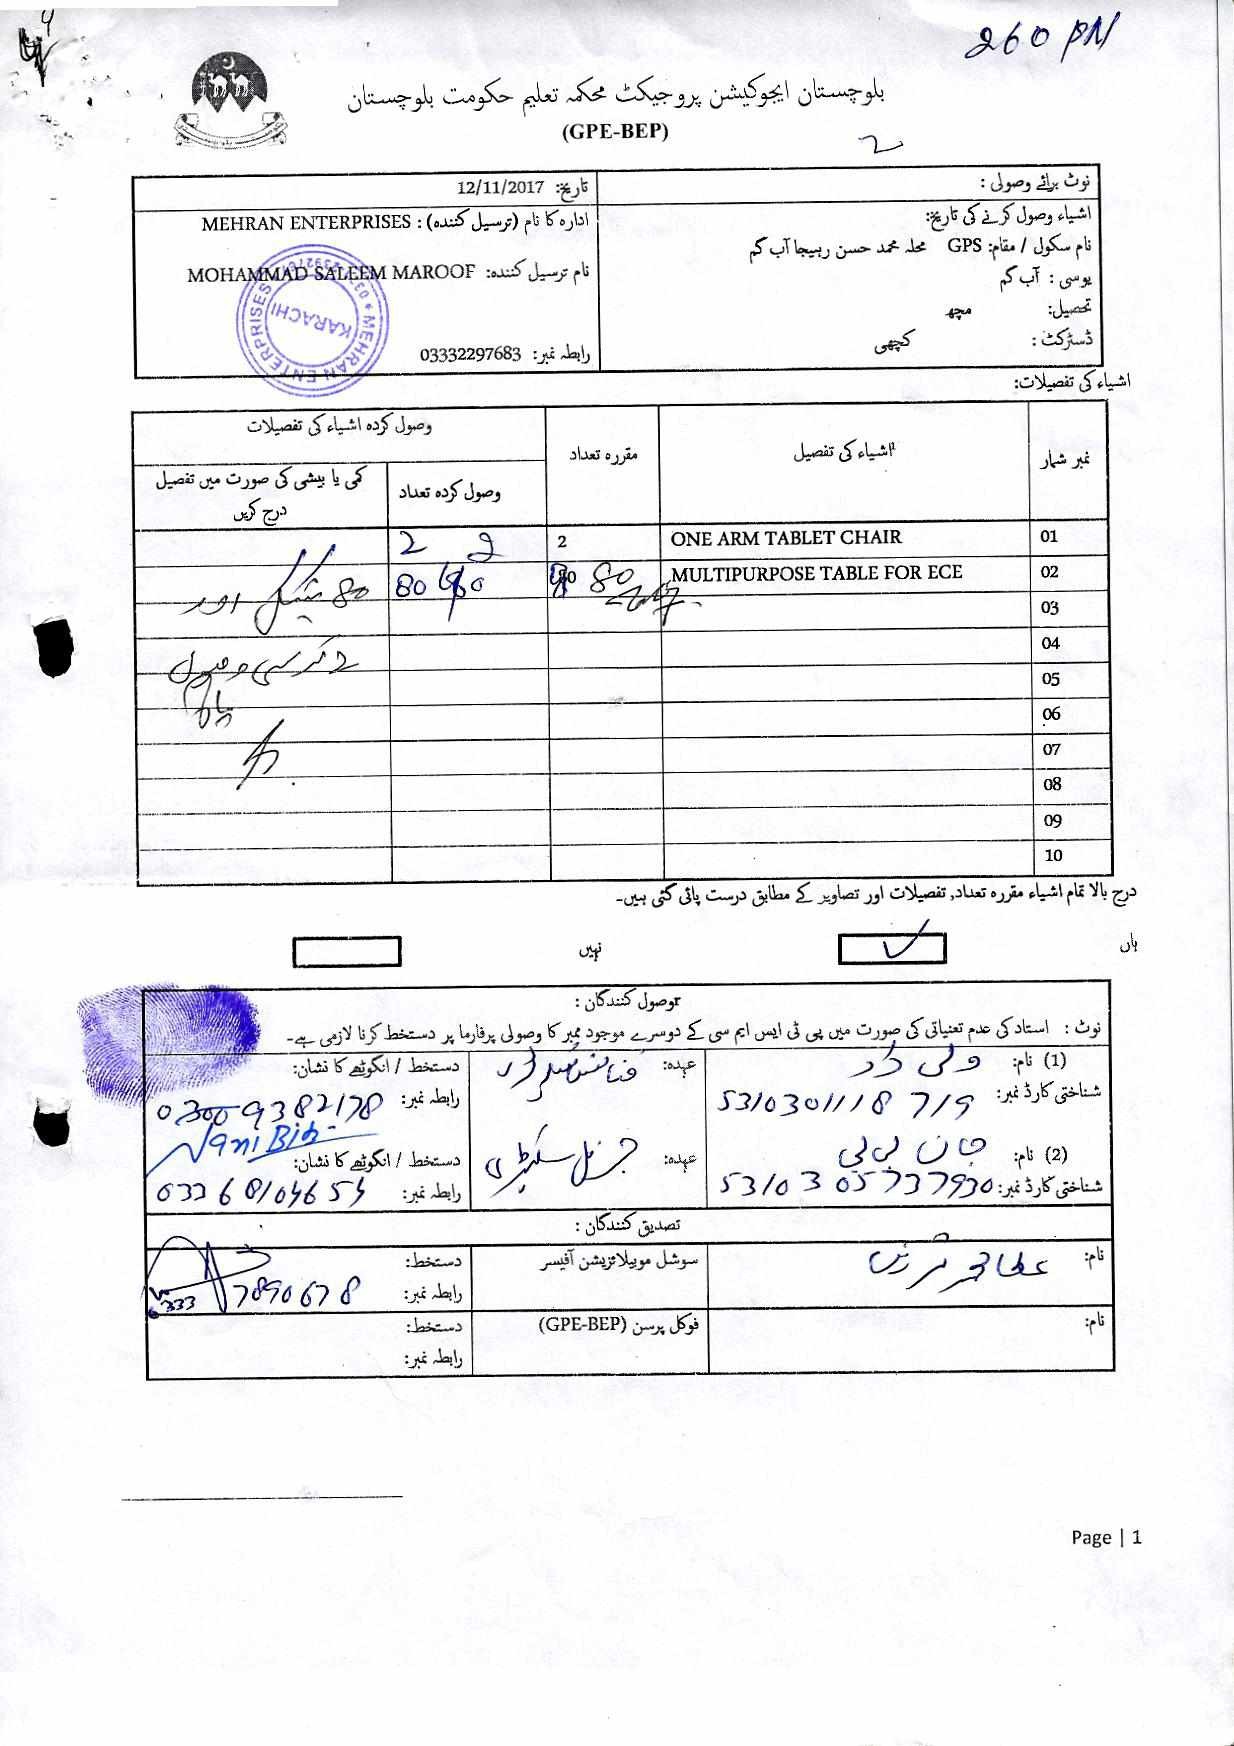 260 PM
بلوچستان ایجوکیشن پروجیکٹ محکمہ تعلیم حکومت بلوچستان
(GPE-BEP)
2
نوٹ برائے وصولی :
اشیاء وصول کرنے کی تاریخ:
نام سکول / مقام: GPS محلہ محمد حسن رہیجا آب گم
یوسی : آب گم
تحصیل: مچھ
ڈسٹرکٹ : کچھی
تاریخ: 12/11/2017
ادارہ کا نام (ترسیل کنندہ) : MEHRAN ENTERPRISES
نام ترسیل کنندہ: MOHAMMAD SALEEM MAROOF
رابطہ نمبر: 03332297683
MEHRAN ENTERPRISES
KARACHI
اشیاء کی تفصیلات:
نمبر شمار اشیاء کی تفصیل مقررہ تعداد وصول کردہ اشیاء کی تفصیلات
وصول کردہ تعداد کمی یا بیشی کی صورت میں تفصیل درج کریں
01 ONE ARM TABLET CHAIR 2 2 2
02 MULTIPURPOSE TABLE FOR ECE 80 80
80 ٹیبل اور
03
04
2 کرسی وصول
05
06
07
08
09
10
درج بالا تمام اشیاء مقررہ تعداد, تفصیلات اور تصاویر کے مطابق درست پائی گئی ہیں۔
ہاں ✓ نہیں
وصول کنندگان :
نوٹ : استاد کی عدم تعنیاتی کی صورت میں پی ٹی ایس ایم سی کے دوسرے موجود ممبر کا وصولی پرفارما پر دستخط کرنا لازمی ہے۔
(1) نام: ولی داد
عہدہ:
دستخط / انگوٹھے کا نشان:
شناختی کارڈ نمبر: 5310301118719
رابطہ نمبر:
(2) نام: جان بی بی
عہدہ: جنرل سیکٹری
دستخط / انگوٹھے کا نشان:
شناختی کارڈ نمبر: 5310305737930
رابطہ نمبر:
تصدیق کنندگان :
نام:
سوشل موبیلائزیشن آفیسر
دستخط:
رابطہ نمبر: 03337890678
نام:
فوکل پرسن (GPE-BEP)
دستخط:
رابطہ نمبر:
Page | 1